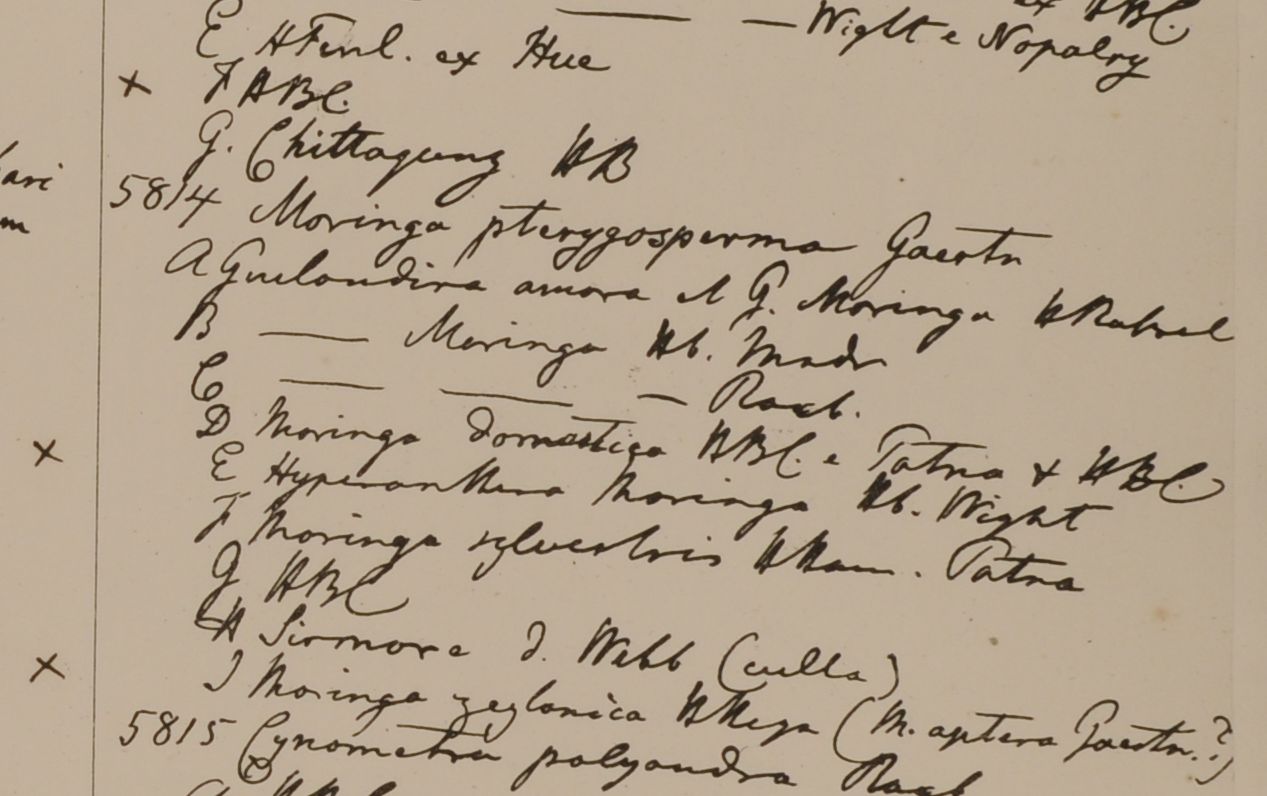 ex HBC.
— — Wight e Nopalry
E HFinl. ex Hue
× F HBC.
G. Chittagung HB
ari
m
5814 Moringa pterygosperma Gaertn
A Guilandina amora et G. Moringa
B — Moringa Hb. Madr
C — — — Roxb.
× D Moringa domestica HBC. e Patna & HBC
E Hyperanthera Moringa Hb. Wight
F Moringa sylvestris HHam. Patna
G HBC
H Sirmore d. Webb (culta)
× I Moringa zeylanica (M. aptera Gaertn.?)
5815 Cynometra polyandra Roxb